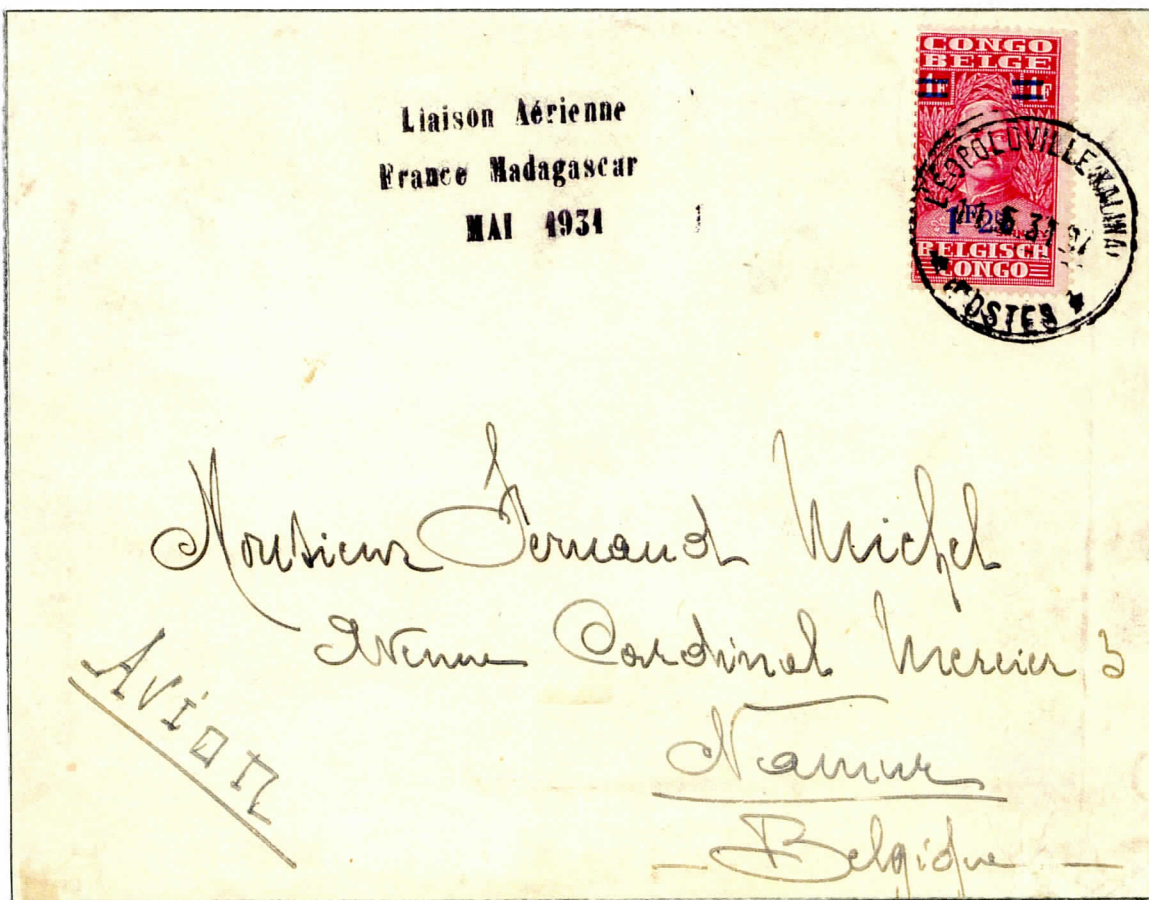 Liaison Aérienne
France Madagascar
MAI 1931
CONGO
BELGE
1F 1F
1F25
BELGISCH
CONGO
LEOPOLDVILLE (KALINA)
5 31
POSTES
Monsieur Fernand Michel
Avenue Cardinal Mercier 3
Namur
Belgique
Avion